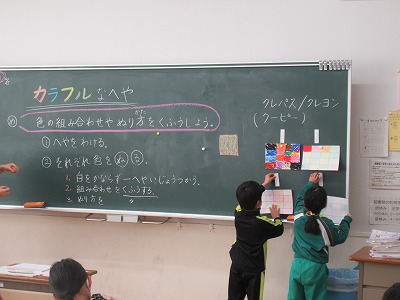 カラフルなへや
め 色の組み合わせやぬり方をくふうしよう。
かた
①へやをわける。
②それぞれ色をぬる。
1. 白をかならず一へやいじょうつかう。
2. 組み合わせをくふうする。
3. ぬり方を 〃
クレパス/クレヨン
(クーピー)